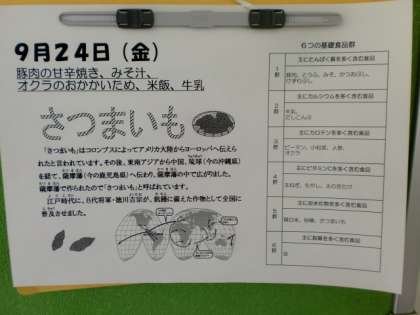 9月24日（金）
豚肉の甘辛焼き、みそ汁、
オクラのおかかいため、米飯、牛乳
さつまいも
「さつまいも」はコロンブスによってアメリカ大陸からヨーロッパへ伝え
られたと言われています。その後、東南アジアから中国、琉球（今の沖縄県）
を経て、薩摩藩（今の鹿児島県）へ伝わり、薩摩藩の中で広がりました。
薩摩藩で作られたので「さつまいも」と呼ばれています。
江戸時代に、8代将軍・徳川吉宗が、飢饉に備えた作物として全国に
普及させました。
6つの基礎食品群
1群
主にたんぱく質を多く含む食品
豚肉、とうふ、みそ、かつおぶし、
2群
主にカルシウムを多く含む食品
牛乳、
だしこんぶ
3群
主にカロテンを多く含む食品
ピーマン、小松菜、人参、
オクラ
4群
主にビタミンCを多く含む食品
玉ねぎ、もやし、えのきたけ
5群
主に炭水化物を多く含む食品
精白米、砂糖、さつまいも
6群
主に脂質を多く含む食品
油